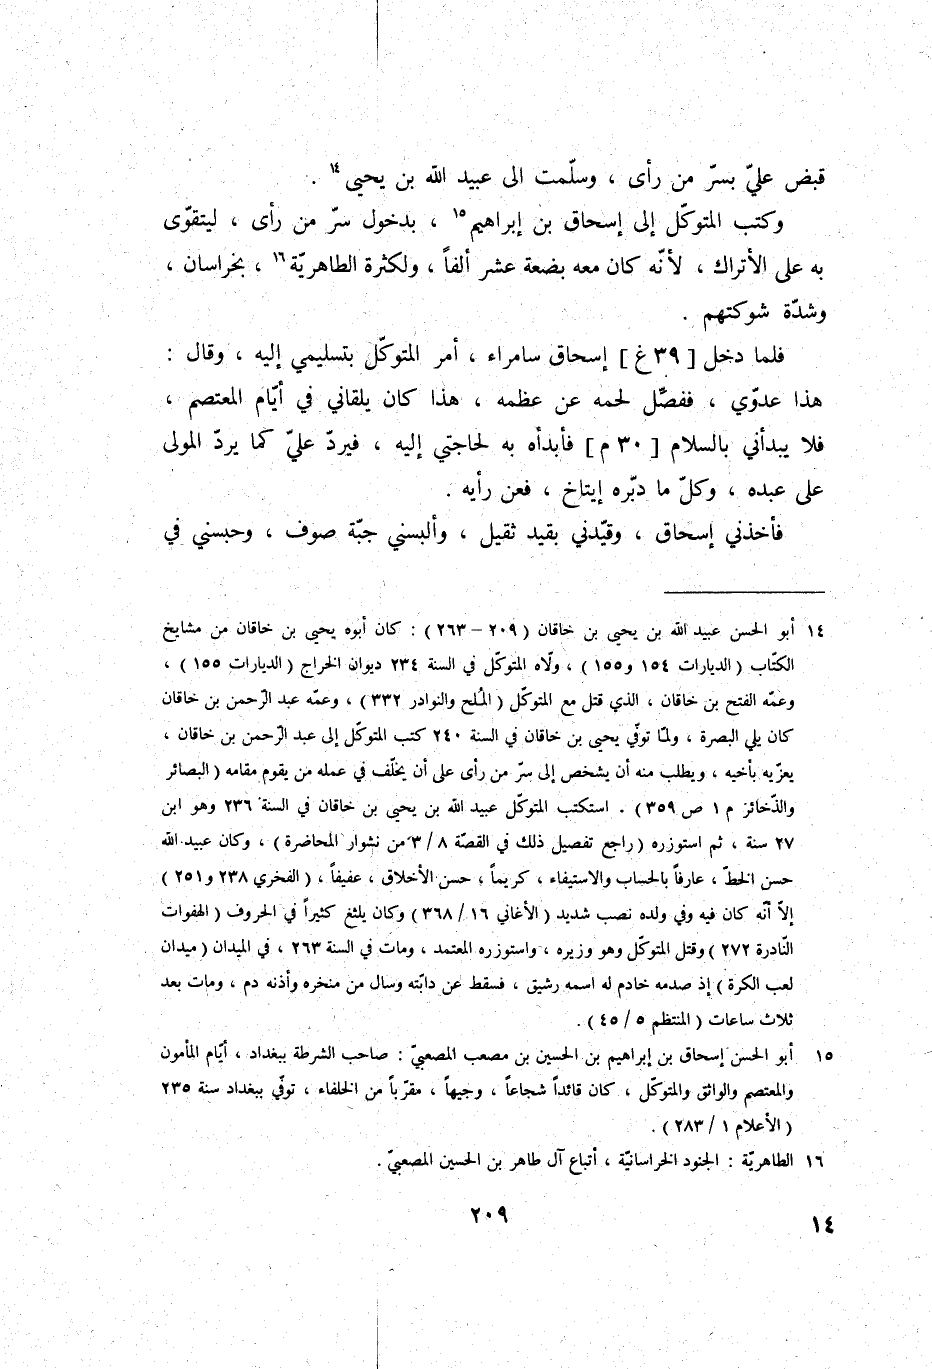 قبض عليّ بسرّ من رأى ، وسلّمت الى عبيد الله بن يحيى١٤ .
وكتب المتوكّل إلى إسحاق بن إبراهيم١٥ ، بدخول سرّ من رأى ، ليتقوّى
به على الأتراك ، لأنّه كان معه بضعة عشر ألفاً ، ولكثرة الطاهريّة١٦ ، بخراسان ،
وشدّة شوكتهم .
فلما دخل [ ٣٩ غ ] إسحاق سامراء ، أمر المتوكّل بتسليمي إليه ، وقال :
هذا عدوّي ، ففصّل لحمه عن عظمه ، هذا كان يلقاني في أيّام المعتصم ،
فلا يبدأني بالسلام [ ٣٠ م ] فأبدأه به لحاجتي إليه ، فيردّ عليّ كما يردّ المولى
على عبده ، وكلّ ما دبّره إيتاخ ، فعن رأيه .
فأخذني إسحاق ، وقيّدني بقيد ثقيل ، وألبسني جبّة صوف ، وحبسني في
١٤ أبو الحسن عبيد الله بن يحيى بن خاقان ( ٢٠٩ – ٢٦٣ ) : كان أبوه يحيى بن خاقان من مشايخ
الكتّاب ( الديارات ١٥٤ و ١٥٥ ) ، ولّاه المتوكّل في السنة ٢٣٤ ديوان الخراج ( الديارات ١٥٥ ) ،
وعمّه الفتح بن خاقان ، الذي قتل مع المتوكّل ( المُلح والنوادر ٣٣٢ ) ، وعمّه عبد الرّحمن بن خاقان
كان يلي البصرة ، ولمّا توفّي يحيى بن خاقان في السنة ٢٤٠ كتب المتوكّل إلى عبد الرّحمن بن خاقان ،
يعزّيه بأخيه ، ويطلب منه أن يشخص إلى سرّ من رأى على أن يخلّف في عمله من يقوم مقامه ( البصائر
والذّخائز م ١ ص ٣٥٩ ) . استكتب المتوكّل عبيد الله بن يحيى بن خاقان في السنة ٢٣٦ وهو ابن
٢٧ سنة ، ثم استوزره ( راجع تفصيل ذلك في القصّة ٨ / ٣ من نشوار المحاضرة ) ، وكان عبيد الله
حسن الخطّ ، عارفاً بالحساب والاستيفاء ، كريماً ، حسن الأخلاق ، عفيفاً ، ( الفخري ٢٣٨ و ٢٥١ )
إلاّ أنّه كان فيه وفي ولده نصب شديد ( الأغاني ١٦ / ٣٦٨ ) وكان يلثغ كثيراً في الحروف ( الهفوات
النّادرة ٢٧٢ ) وقتل المتوكّل وهو وزيره ، واستوزره المعتمد ، ومات في السنة ٢٦٣ ، في الميدان ( ميدان
لعب الكرة ) إذ صدمه خادم له اسمه رشيق ، فسقط عن دابّته وسال من منخره وأذنه دم ، ومات بعد
ثلاث ساعات ( المنتظم ٥ / ٤٥ ) .
١٥ أبو الحسن إسحاق بن إبراهيم بن الحسين بن مصعب المصعبيّ : صاحب الشرطة ببغداد ، أيّام المأمون
والمعتصم والواثق والمتوكّل ، كان قائداً شجاعاً ، وجيهاً ، مقرّباً من الخلفاء ، توفّي ببغداد سنة ٢٣٥
( الأعلام ١ / ٢٨٣ ) .
١٦ الطاهريّة : الجنود الخراسانيّة ، أتباع آل طاهر بن الحسين المصعبيّ .
٢٠٩
١٤